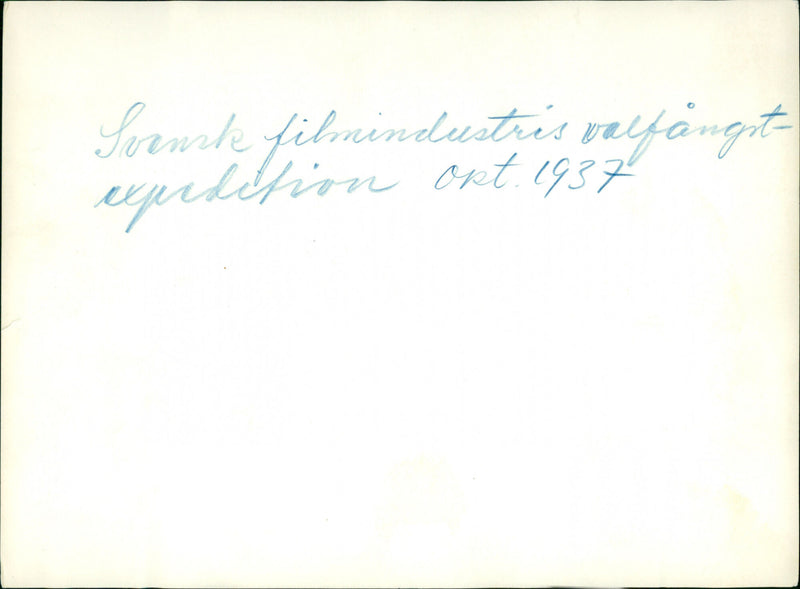 Svensk filmindustris valfångst-
expedition okt. 1937